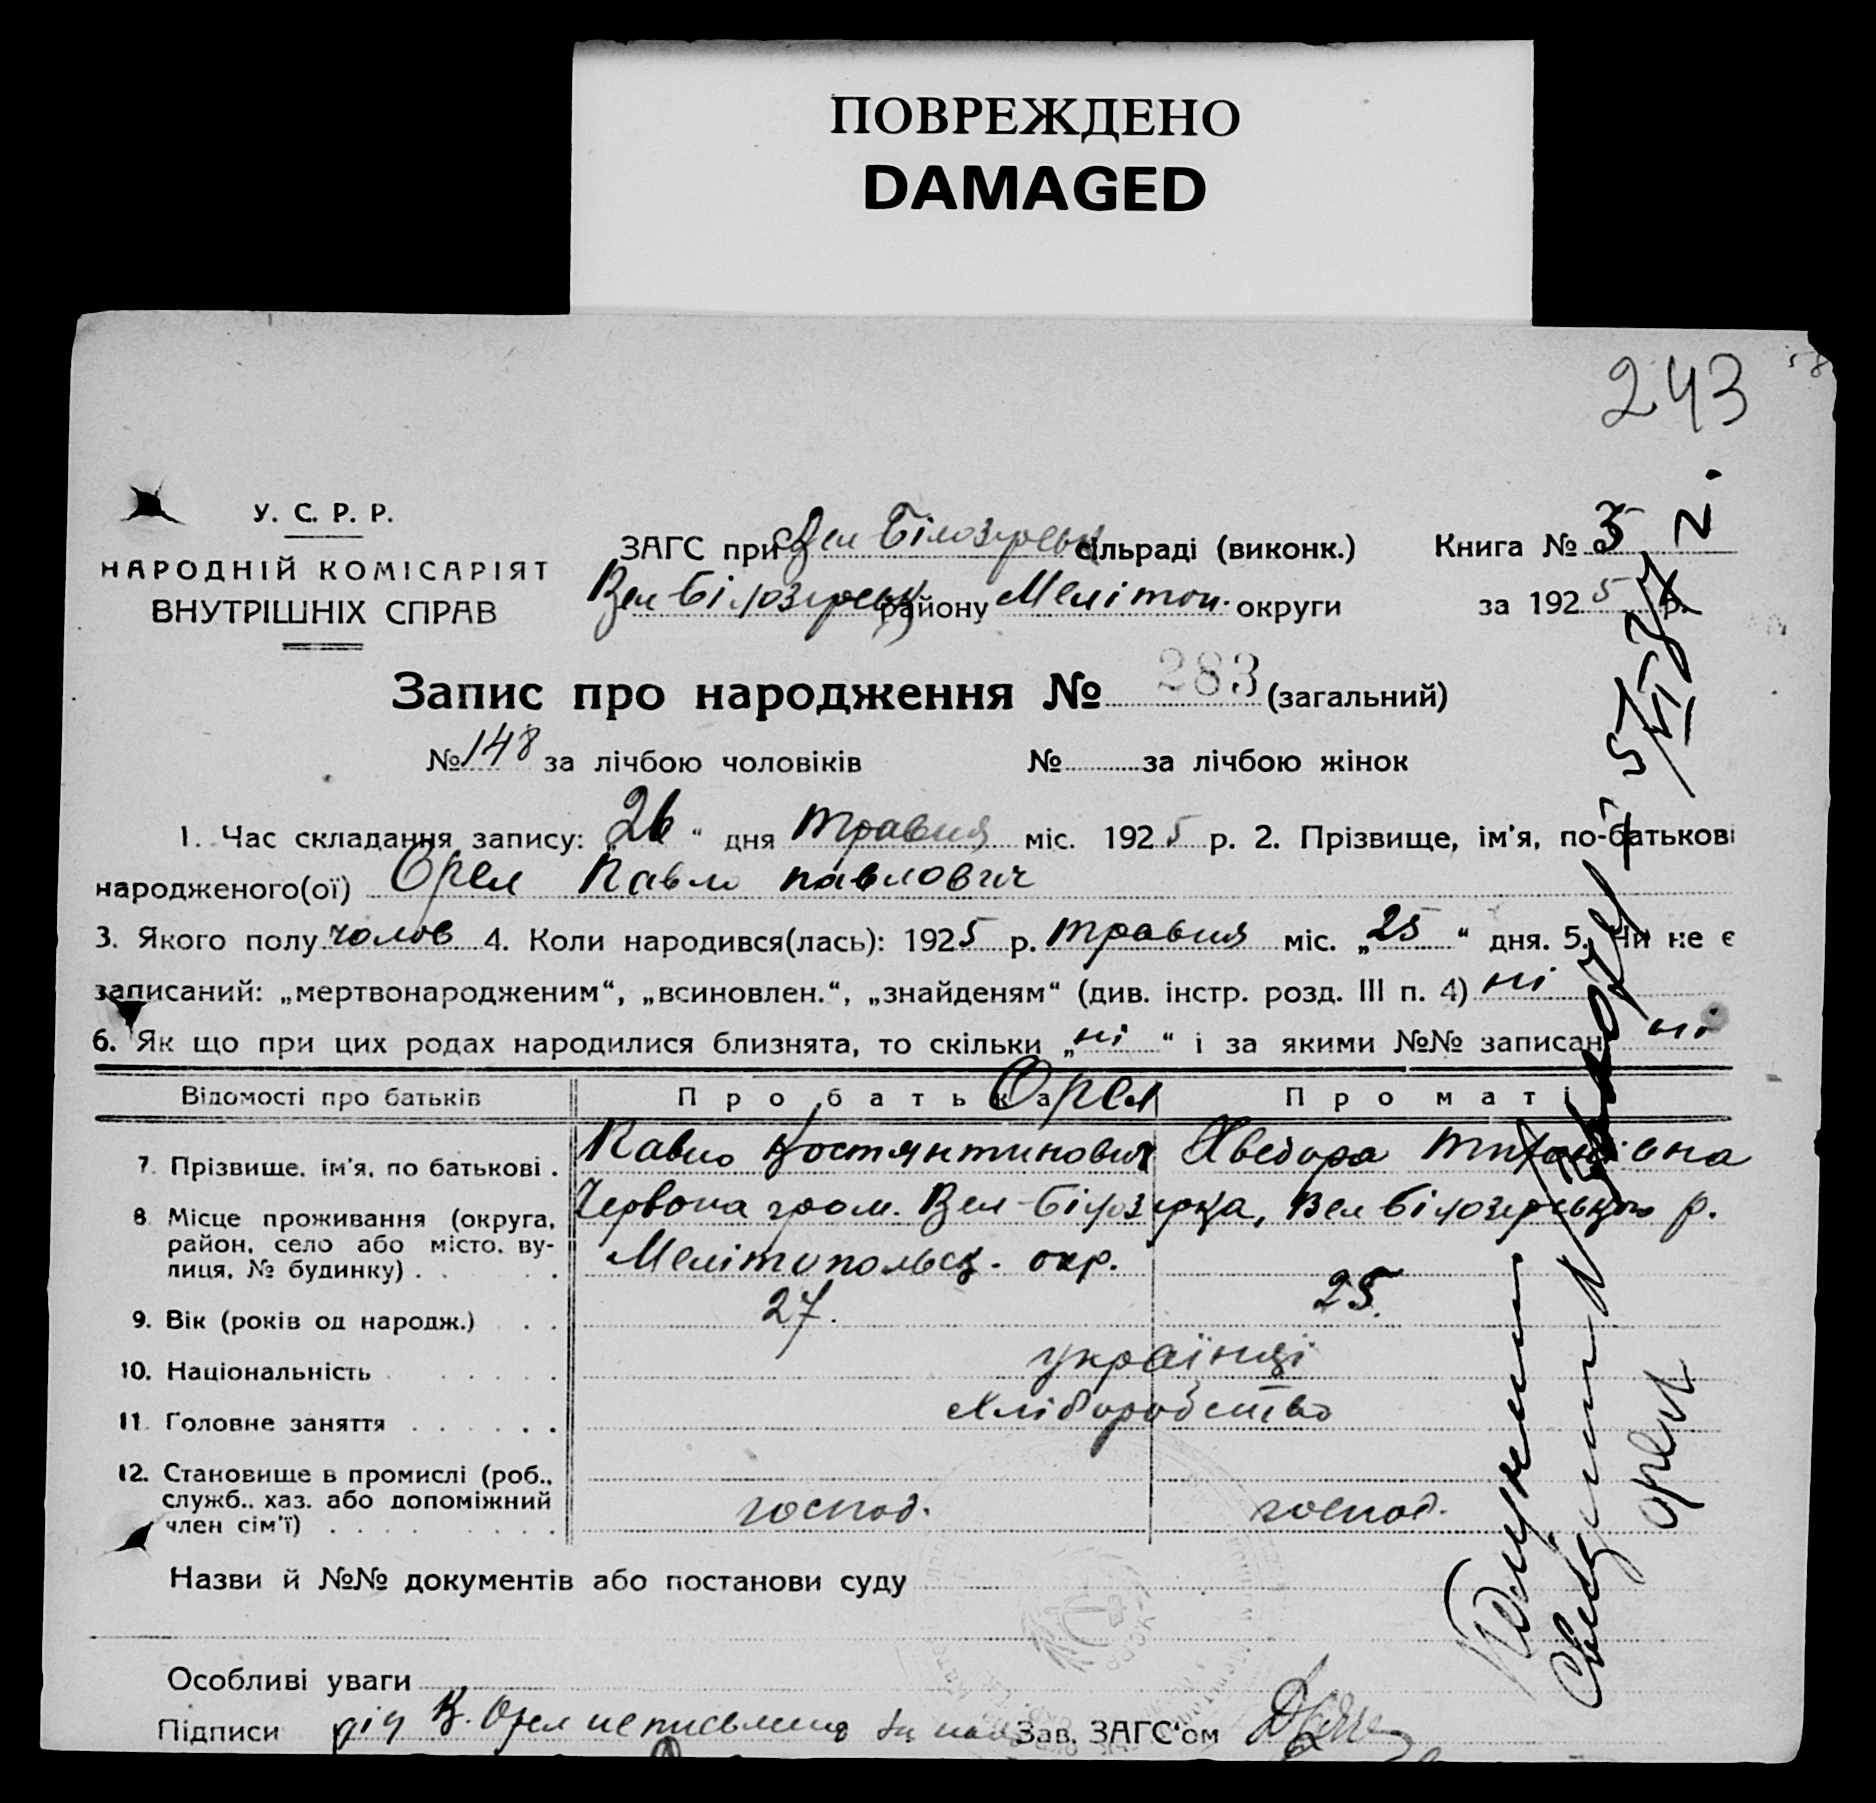 ПОВРЕЖДЕНО
DAMAGED
243
58
У. С. Р. Р.
НАРОДНІЙ КОМІСАРІЯТ
ВНУТРІШНІХ СПРАВ
ЗАГС при Вел Білозирськ сільраді (виконк.) Книга № 3
Вел Білозирськ району Мелітоп. округи за 1925 р.
Запис про народження № 283 (загальний)
№ 148 за лічбою чоловіків № за лічбою жінок
1. Час складання запису: „26“ дня травня міс. 1925 р. 2. Прізвище, ім'я, по-батькові
народженого(ої) Орел Павло павлович
3. Якого полу чолов 4. Коли народився(лась): 1925 р. травня міс. „25“ дня. 5. Чи не є
записаний: „мертвонародженим“, „всиновлен.“, „знайденям“ (див. інстр. розд. III п. 4) ні
6. Як що при цих родах народилися близнята, то скільки „ні“ і за якими №№ записан ні
Відомості про батьків Про батька Про матір
Орел
7. Прізвище, ім'я, по батькові . Павло Костянтинович Хведора
8. Місце проживання (округа, район, село або місто, ву-лиця, № будинку) . . . Червона гром. Вел-Білозирка, Вел Білозирського р.
Мелітопольск. окр.
9. Вік (років од народж.) . . 27. 25.
10. Національність . . . . . українці
11. Головне заняття . . . . . . Хліборобство
12. Становище в промислі (роб., служб., хаз. або допоміжний член сім'ї) . . . . . . . . господ. господ.
Назви й №№ документів або постанови суду
Особливі уваги
Підписи дід К. Орел неписьмений Зав. ЗАГС'ом
Орел